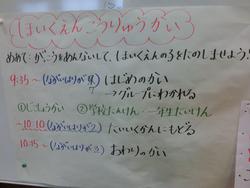 ほいくえんこうりゅうかい
めあて:がっこうをあんないして、ほいくえんの子をたのしませよう!
9:35～(ながいはりが7) はじめのかい
→グループにわかれる
①じこしょうかい ②学校たんけん・一年生たいけん
～10:10(ながいはりが2) たいいくかんにもどる
10:15～(ながいはりが3) おわりのかい